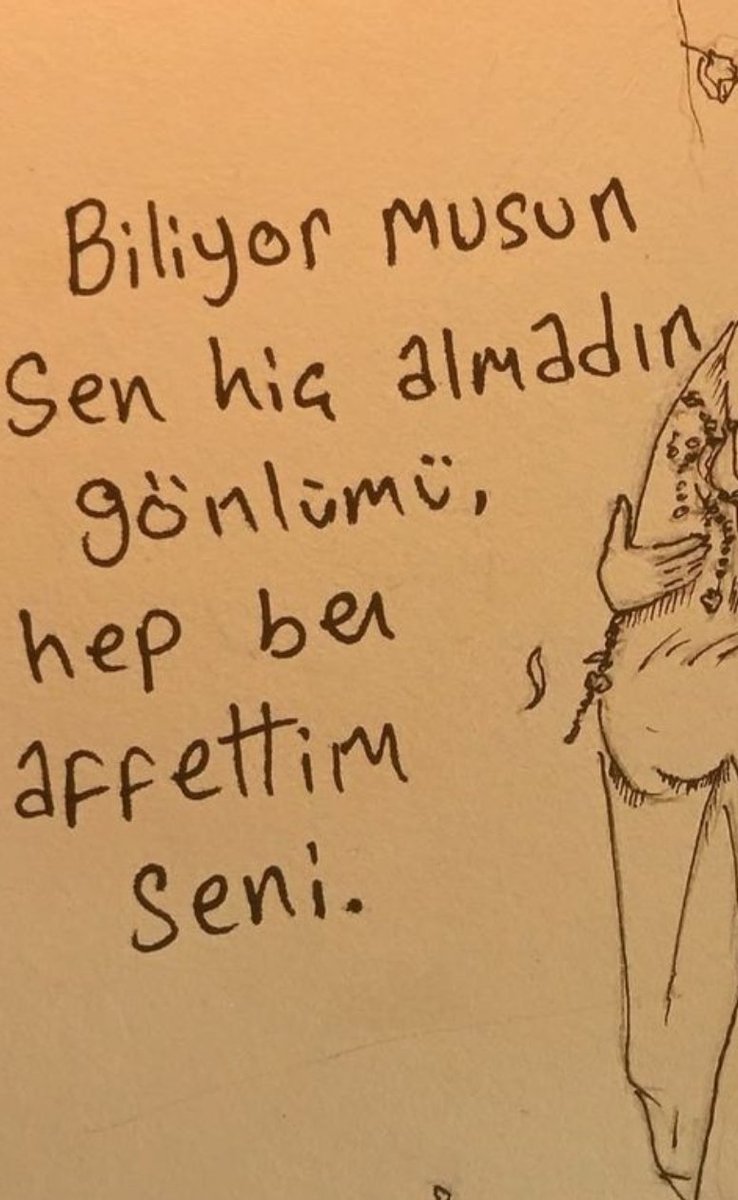 Biliyor musun
Sen hiç almadın
gönlümü,
hep ben
affettim
seni.